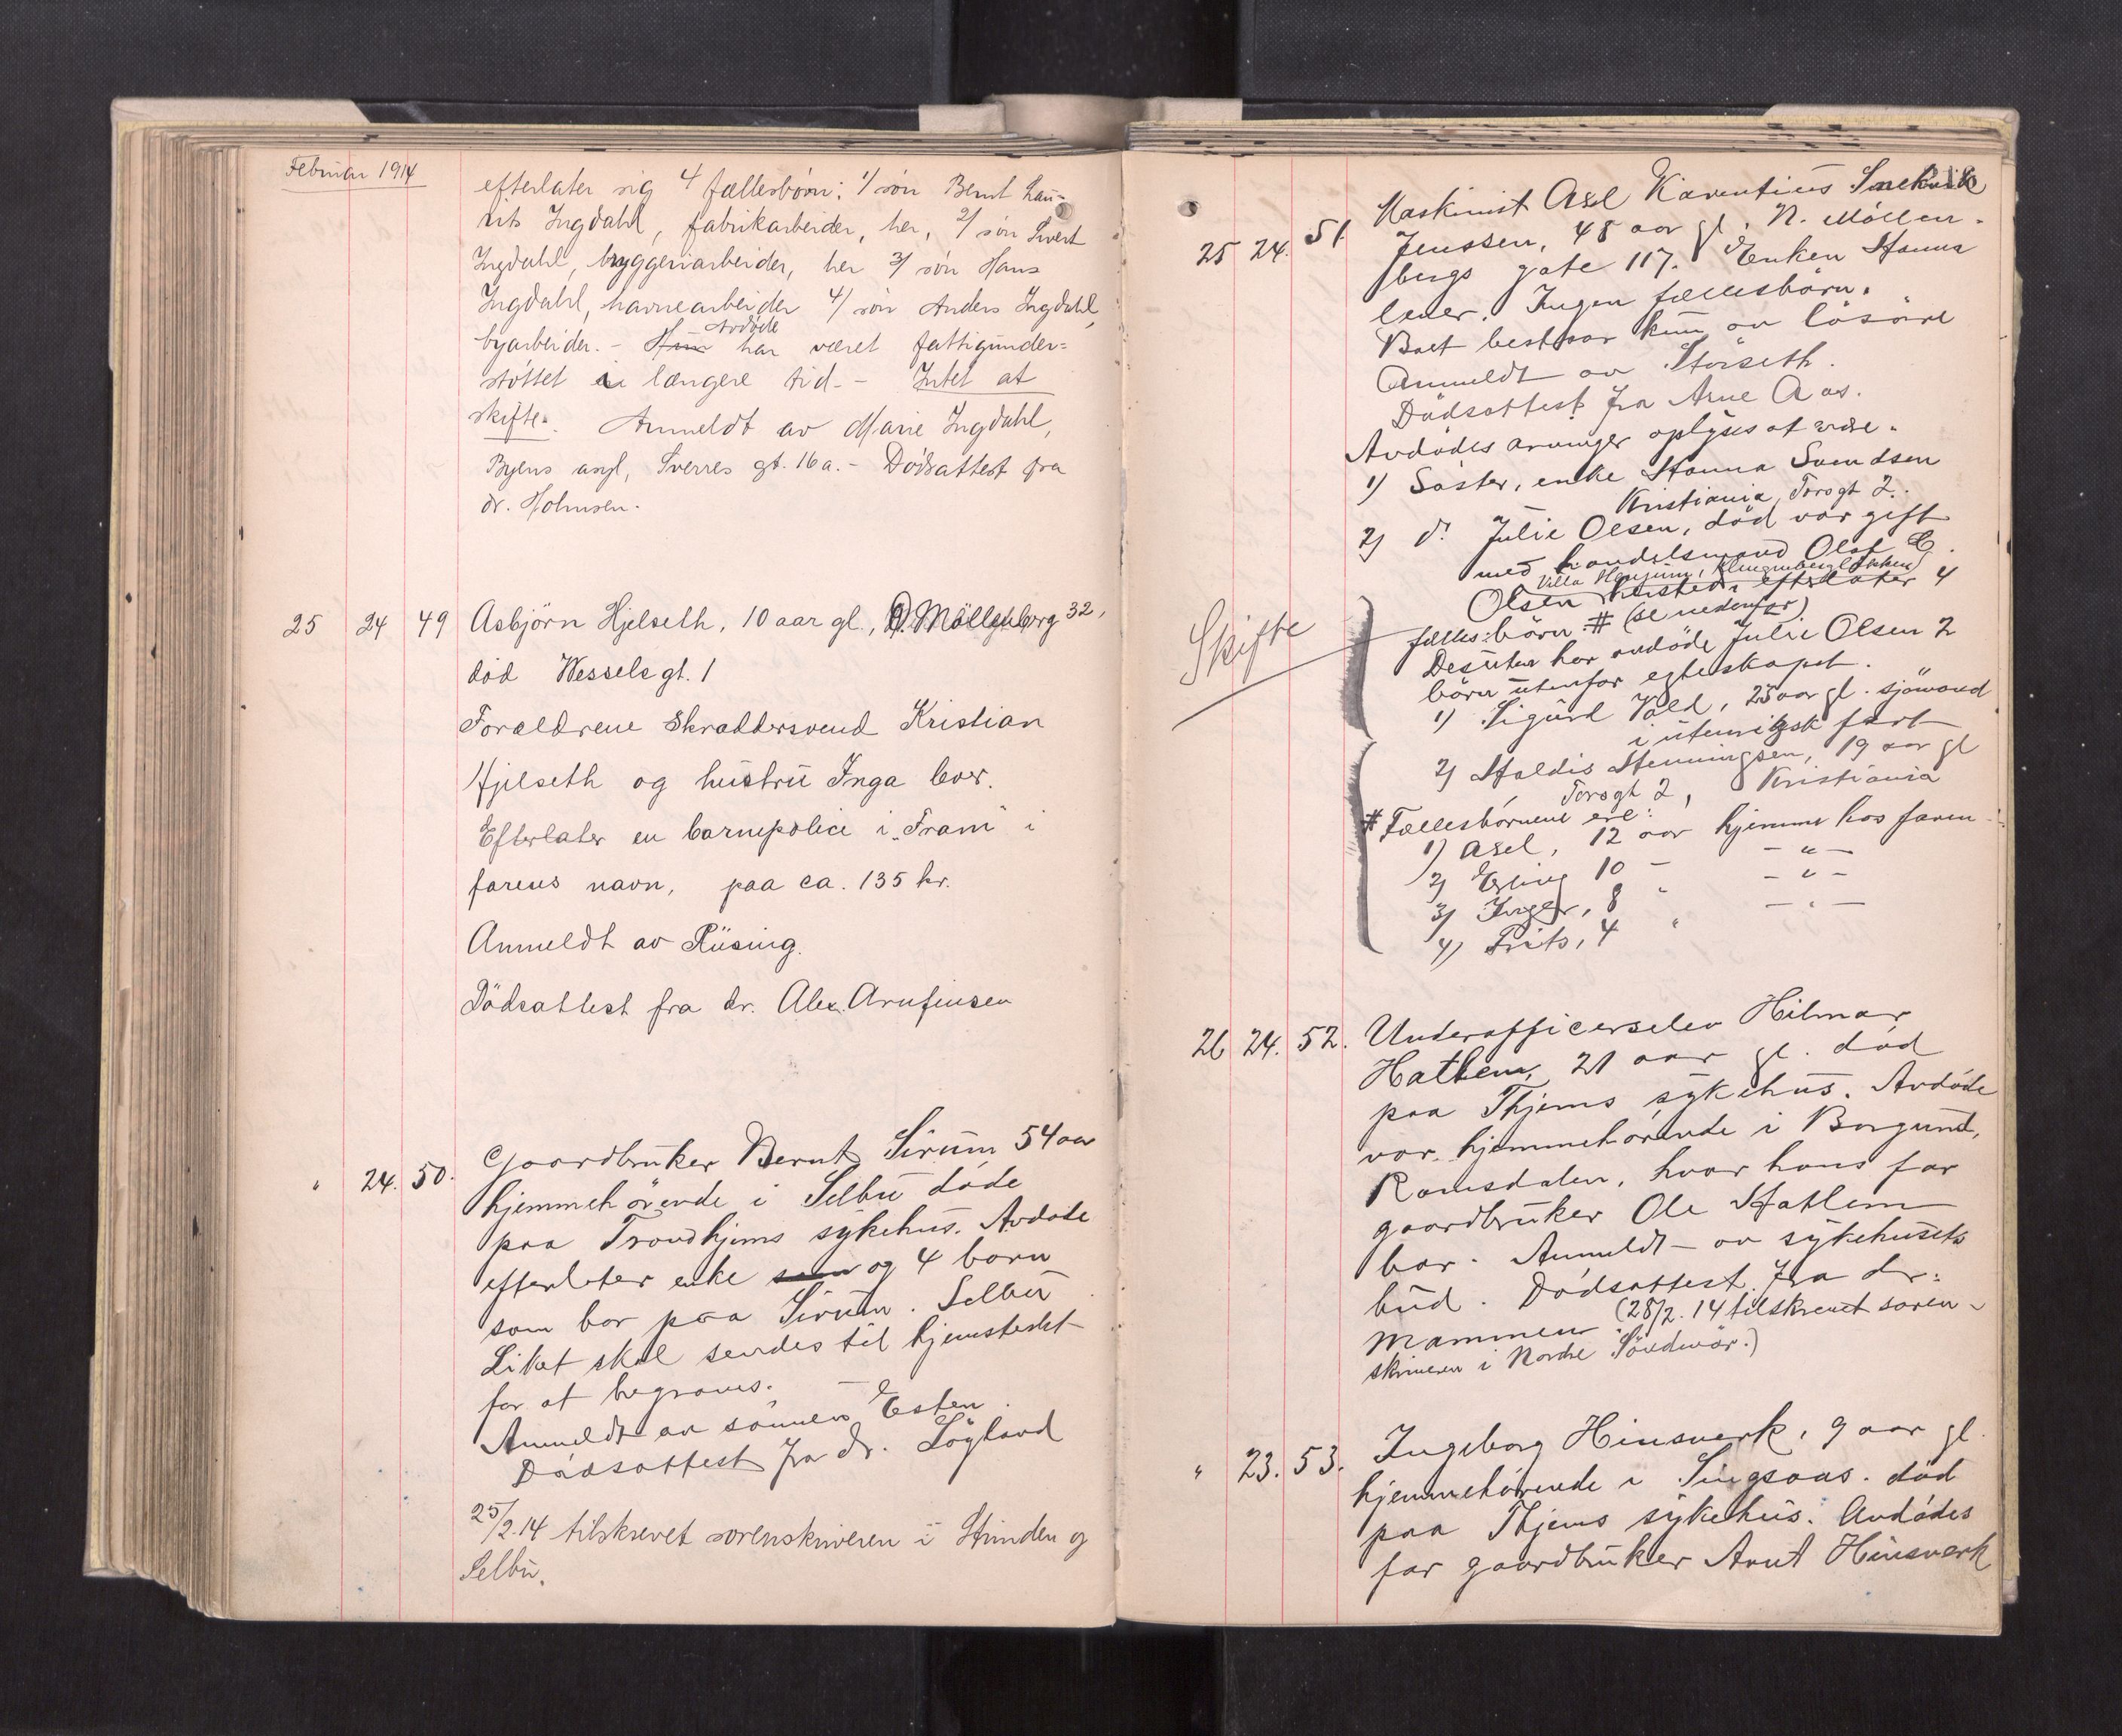 Februar 1914
efterlater sig 4 fællesbørn: 1/ søn Bernt Lau-
rits Ingdahl, fabrikarbeider, her, 2/ søn Sivert
Ingdahl, bryggeriarbeider, her 3/ søn Hans
Ingdahl, havnearbeider 4/ søn Anders Ingdahl,
byarbeider. - Hun Avdöde har været fattigunder=
støttet i længere tid. - Intet at
skifte. Anmeldt av Marie Ingdahl,
Byens asyl, Sverres gt. 16a. - Dødsattest fra
dr. Holmsen.
25 24 49 Asbjörn Hjelseth, 10 aar gl., Möllenberg 32,
död Wessels gt. 1
Forældrene Skræddersvend Kristian
Hjelseth og hustru Inga lever.
Efterlater en barnepolice i „Fram" i
farens navn, paa ca. 135 kr.
Anmeldt av Rüsing.
Dödsattest fra dr. Alex. Arnfinsen
" 24. 50. Gaardbruker Bernt Sirum 54 aar
hjemmehörende i Selbu döde
paa Trondhjems sykehus. Avdöde
efterlater enke som og 4 born
som bor paa Sirum. Selbu
Liket skal sendes til hjemstedet
for at begraves.
Anmeldt av sönnen Esten.
Dödsattest fra dr. Lögland
25/2.14 tilskrevet sorenskriveren i Strinden og
Selbu.
25 24. 51. Maskinist Axel Karentius Snekvik
Jenssen, 48 aar gl. N. Möllen-
bergs gate 117. Enken Hanna
lever. Ingen fællesbörn.
Boet bestaar kun av lösöre
Anmeldt av Störseth.
Dödsattest fra Arne Aas.
Avdödes arvinger oplyses at være.
1) Söster, enke Hanna Svendsen
Kristiania, Torsgt 2.
2) do Julie Olsen, död var gift
med handelsmand Olaf E.
Villa Klingenbergløkken
Olsen efterlater 4
fælles börn # (se nedenfor)
Skifte
Desuten har avdöde Julie Olsen 2
börn utenfor egteskapet.
1) Sigurd Vold, 25 aar gl. sjömand
i utenriksk fart
2) Haldis Henningsen, 19 aar gl
Torsgt 2, Kristiania
# Fællesbörnene ere:
1) Axel, 12 aar hjemme hos faren
2) Erling 10 - - " -
3) Inger, 8 " - " -
4) Frits, 4 " - " -
26 24. 52. Underofficerselev Hilmar
Hatlem, 21 aar gl. död
paa Thjems sykehus. Avdöde
var hjemmehörende i Borgund,
Romsdalen, hvor hans far
gaardbruker Ole Hatlem
bor. Anmeldt av sykehusets
bud. Dödsattest fra dr:
Mammen (28/2.14 tilskrevet soren-
skriveren i Nordre Söndmör.)
" 23. 53. Ingeborg Hinsverk, 9 aar gl.
hjemmehörende i Singsaas. död
paa Thjems sykehus. Avdödes
far gaardbruker Arnt Hinsverk